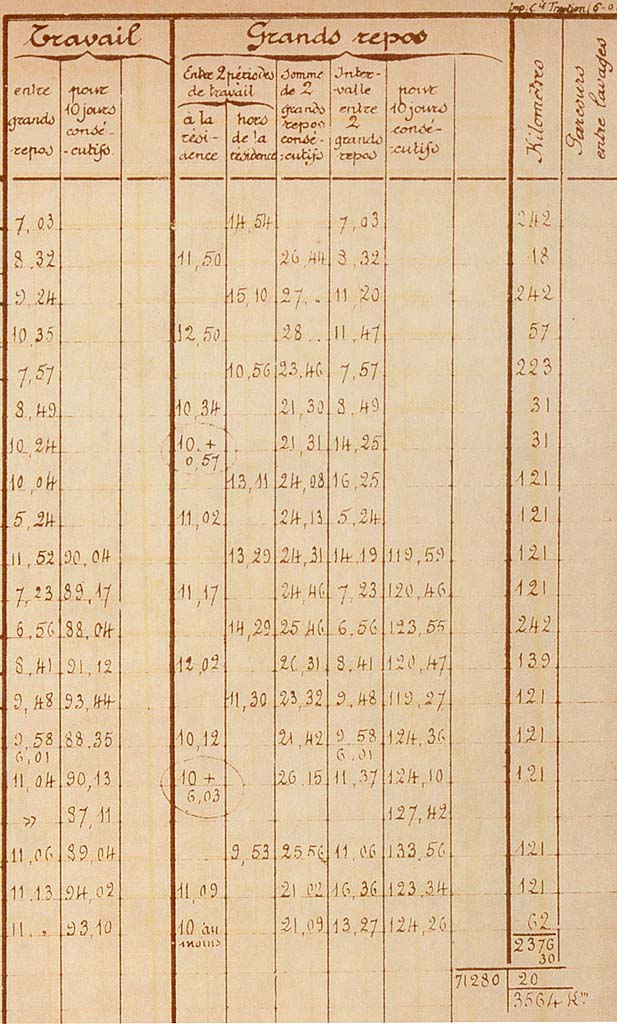 Imp. Cie Traction (6-0
Travail Grands repos
Kilomètres
Parcours entre lavages
entre grands repos
pour 10 jours consé-cutifs
Entre 2 périodes de travail
à la rési-dence
hors de la résidence
Somme de 2 grands repos consé-cutifs
Inter-valle entre 2 grands repos
pour 10 jours consé-cutifs
7,03 14,54 7,03 242
8.32 11,50 26,44 8,32 18
9,24 15,10 27,. 11 20 242
10,35 12,50 28 .. 11,47 57
7,57 10,56 23.46 7,57 223
8,49 10,34 21,30 8,49 31
10,24 10,+ 21,31 14,25 31
0,57
10,04 13,11 24,08 16,25 121
5,24 11,02 24,13 5,24 121
11,52 90,04 13,29 24,31 14,19 119,59 121
7,23 89,17 11,17 24,46 7,23 120,46 121
6,56 88,04 14,29 25,46 6,56 123,55 242
8,41 91,12 12,02 26,31 8,41 120,47 139
9,48 93,44 11,30 23,32 9,48 119,27 121
9,58 88.35 10,12 21,42 9,58 124,36 121
6,01 6,01
11,04 90,13 10 + 26.15 11,37 124,10 121
6,03
» 87,11 127,42
11,06 89,04 9,53 25.56 11,06 133,56 121
11.13 94,02 11,09 21 02 16,36 123,34 121
11 .. 93,10 10 au 21,09 13,27 124,26 62
moins
2376
30
71280 20
3564 Km